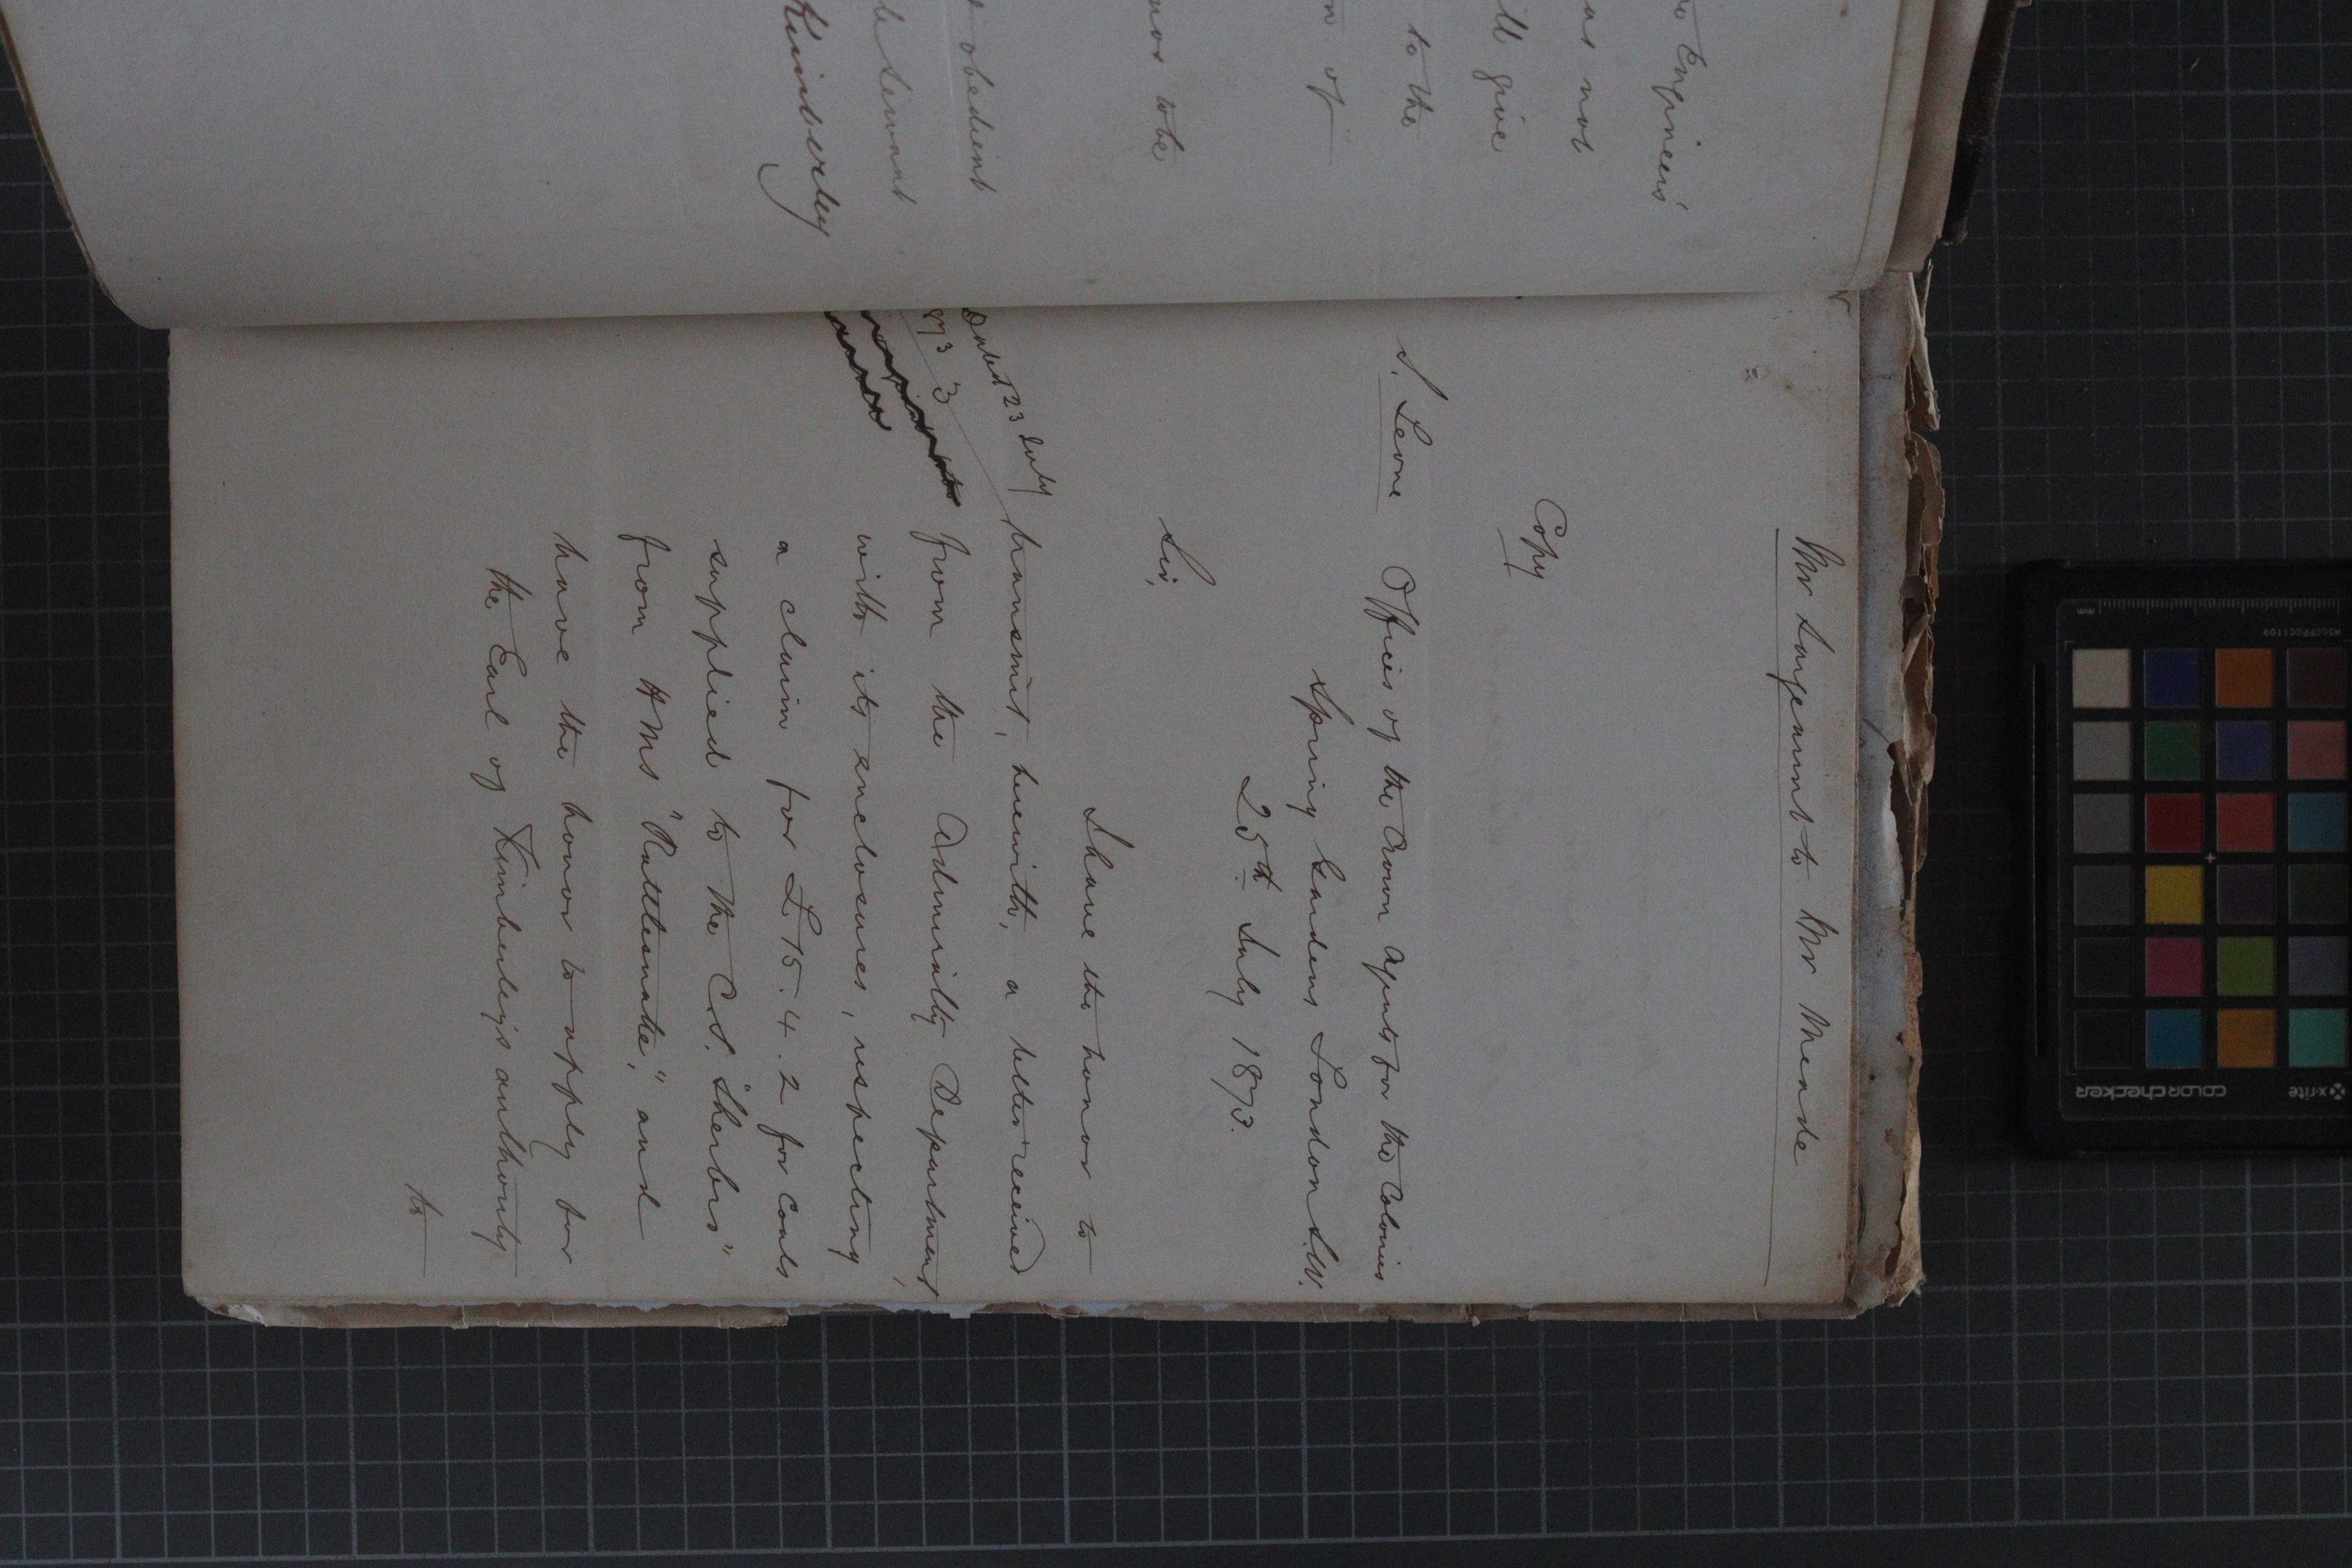 to Engineers'
as not
ill give
to the
n of
nor to be
t obedient
le servant
Kimberley
Mr Sargeaunt to Mr Meade
Copy
S. Leone
Offices of the Crown Agents for the Colonies
Spring Gardens London S.W.
25th July 1873.
Sir,
I have the honor to
Dated 23 July
873 3
transmit, herewith, a letter received
from the Admiralty Department,
with its enclosures, respecting
a claim for £15.4.2 for Coals
supplied to the C.S. "Sherbro"
from HMS "Rattlesnake", and
have the honor to apply for
the Earl of Kimberley's authority
to
x-rite
colorchecker
MSCCPPCC1109
mm